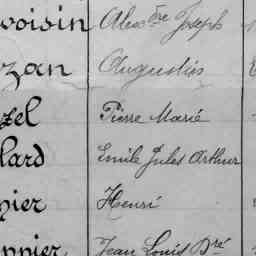 voisin Alexdre Joseph
zan Augustin
zel Pierre Marie
lard Emile Jules Arthur
pier Henri
nnier Jean Louis Dré